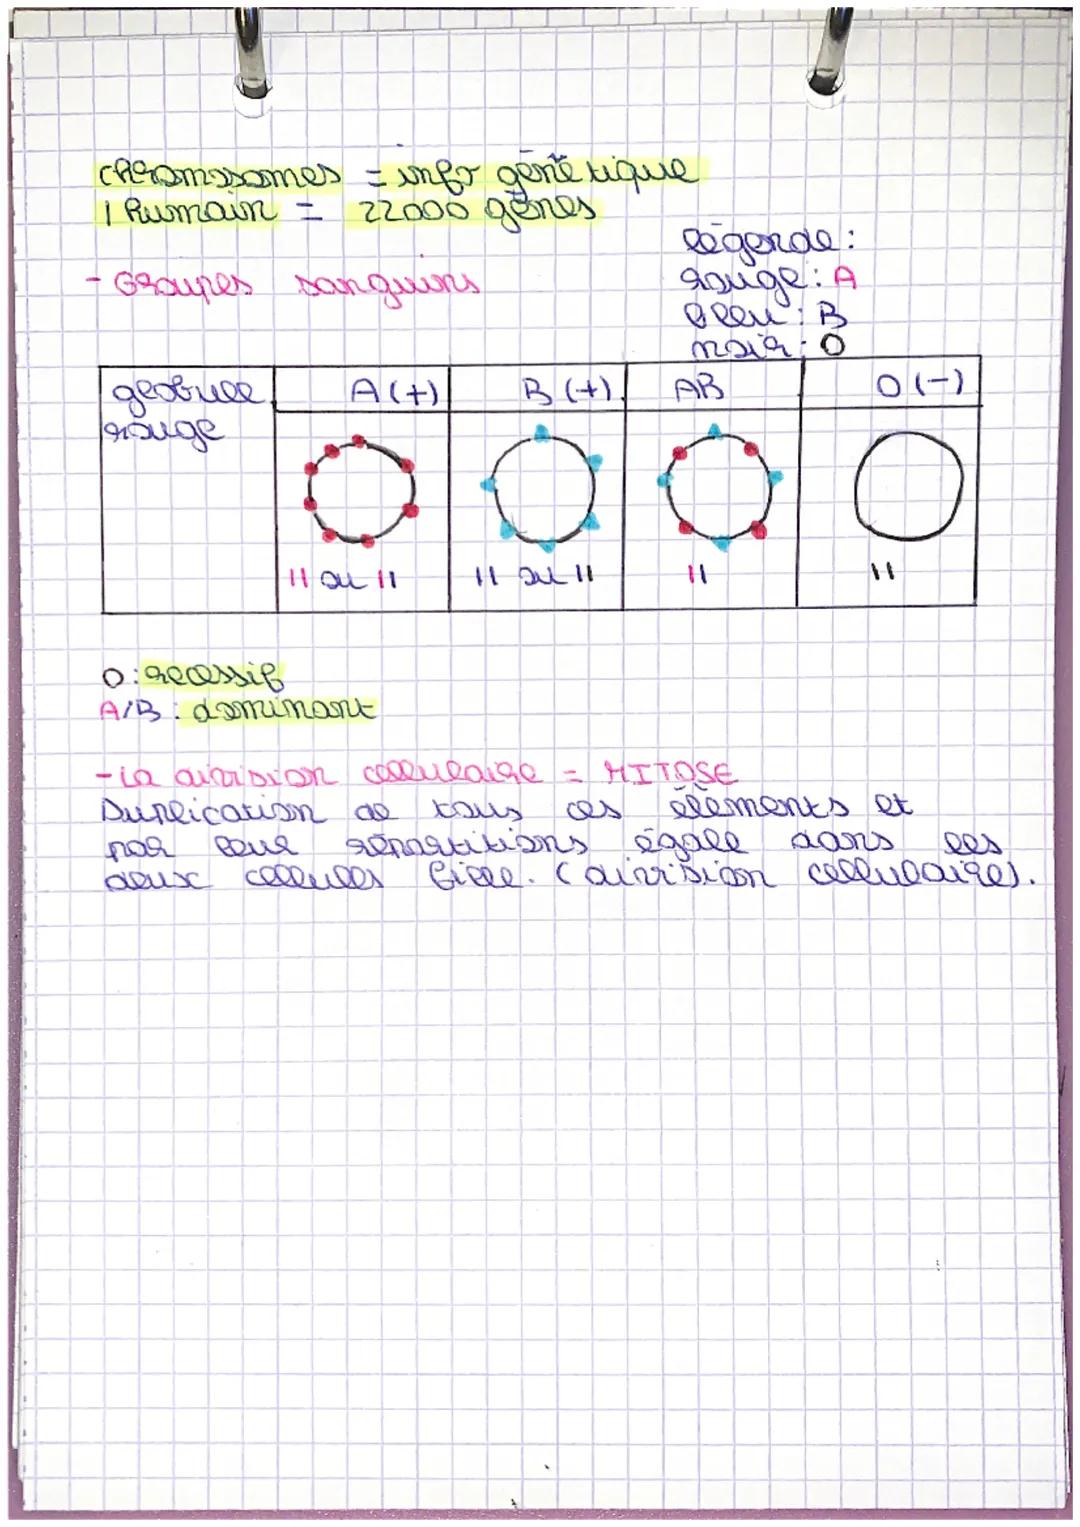 chromosomes = info génétique
1 humain = 22000 gênes
légende:
rouge: A
bleu: B
noir: O
- Groupes sanguins
globule rouge
A (+)
B (+)
AB
O (-)
II ou II
II ou II
II
II
O: recessif
A/B: dominant
- La division cellulaire = MITOSE
Duplication de tous ces élements et
par leur répartitions égale dans les
deux cellules fille. (division cellulaire).